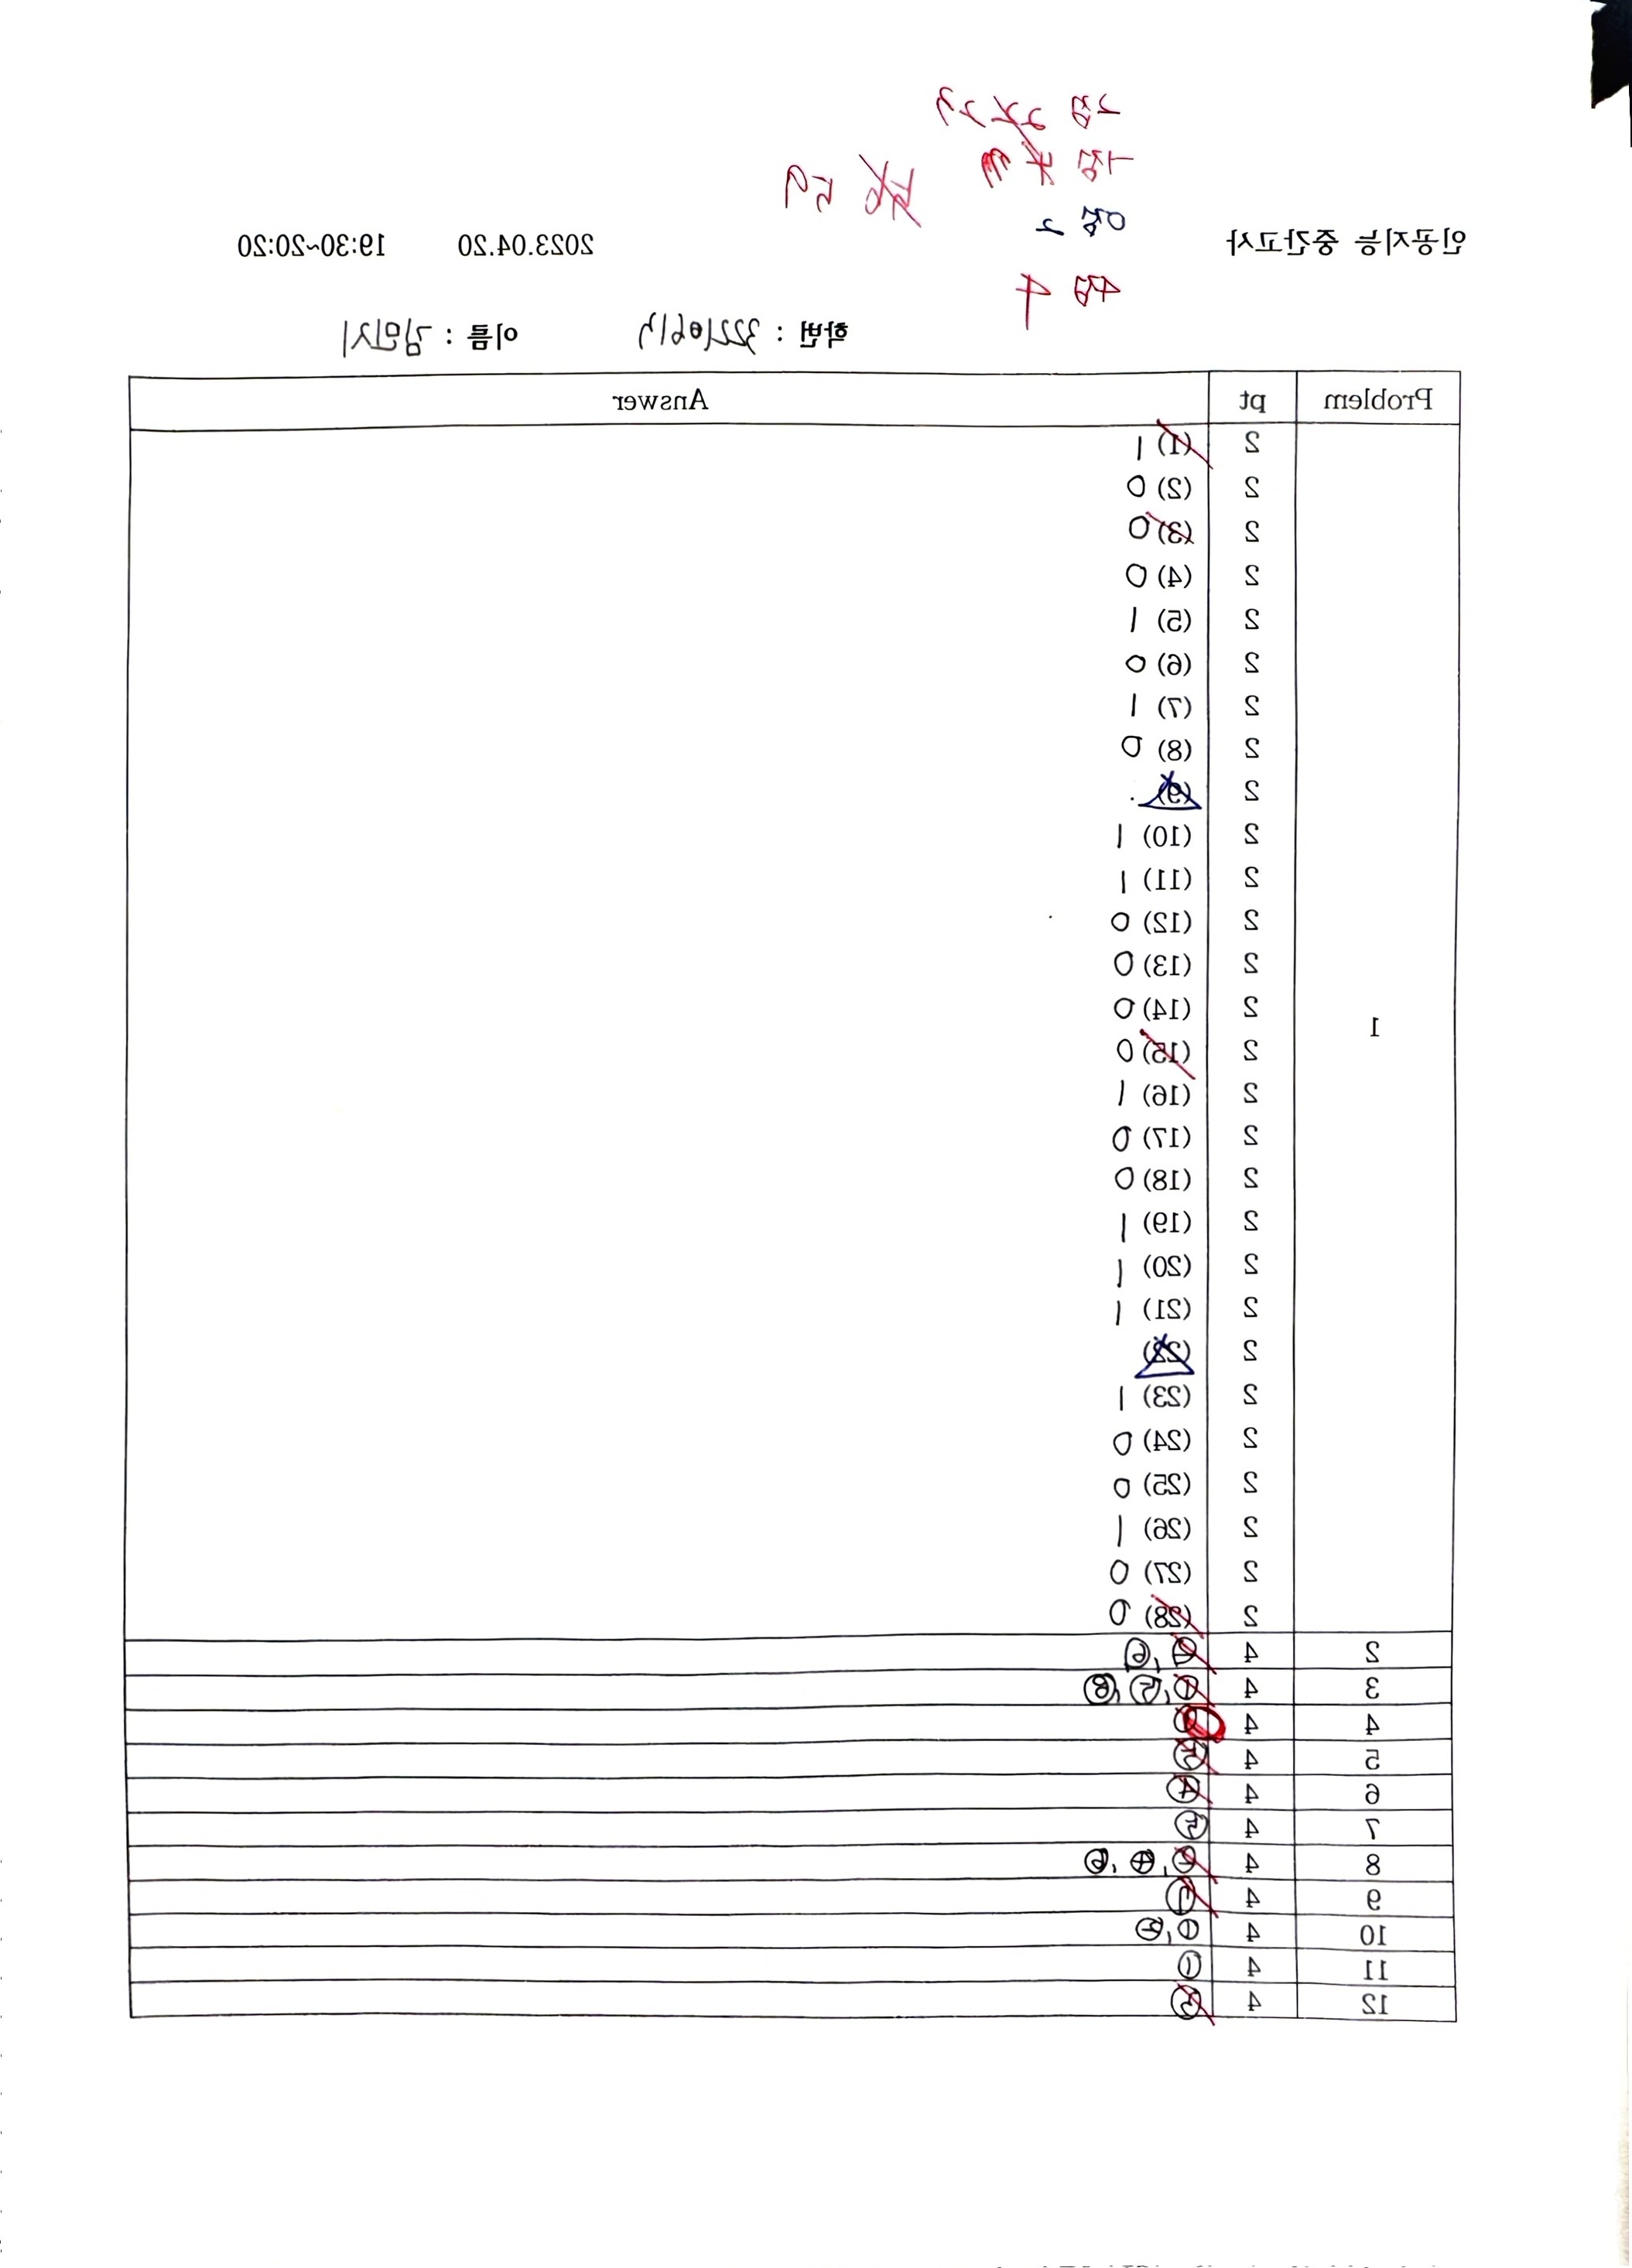 2점 23
-1점
0점 2
59
인공지능 중간고사 2023.04.20 19:30~20:20
4점 4
학번 : 이름 : 김민지
Problem pt Answer
2 (1) 1
2 (2) 0
2 (3) 0
2 (4) 0
2 (5) 1
2 (6) 0
2 (7) 1
2 (8) 0
2 (9)
2 (10) 1
2 (11) 1
2 (12) 0
2 (13) 0
2 (14) 0
1 2 (15) 0
2 (16) 1
2 (17) 0
2 (18) 0
2 (19) 1
2 (20) 1
2 (21) 1
2 (22)
2 (23) 1
2 (24) 0
2 (25) 0
2 (26) 1
2 (27) 0
2 (28) 0
2 4 ⑥
3 4 ①, ⑤, ⑧
4 4
5 4 ⑤
6 4 ④
7 4 ⑤
8 4 ④, ⑥
9 4 ①
10 4 ①,
11 4 ①
12 4 ③